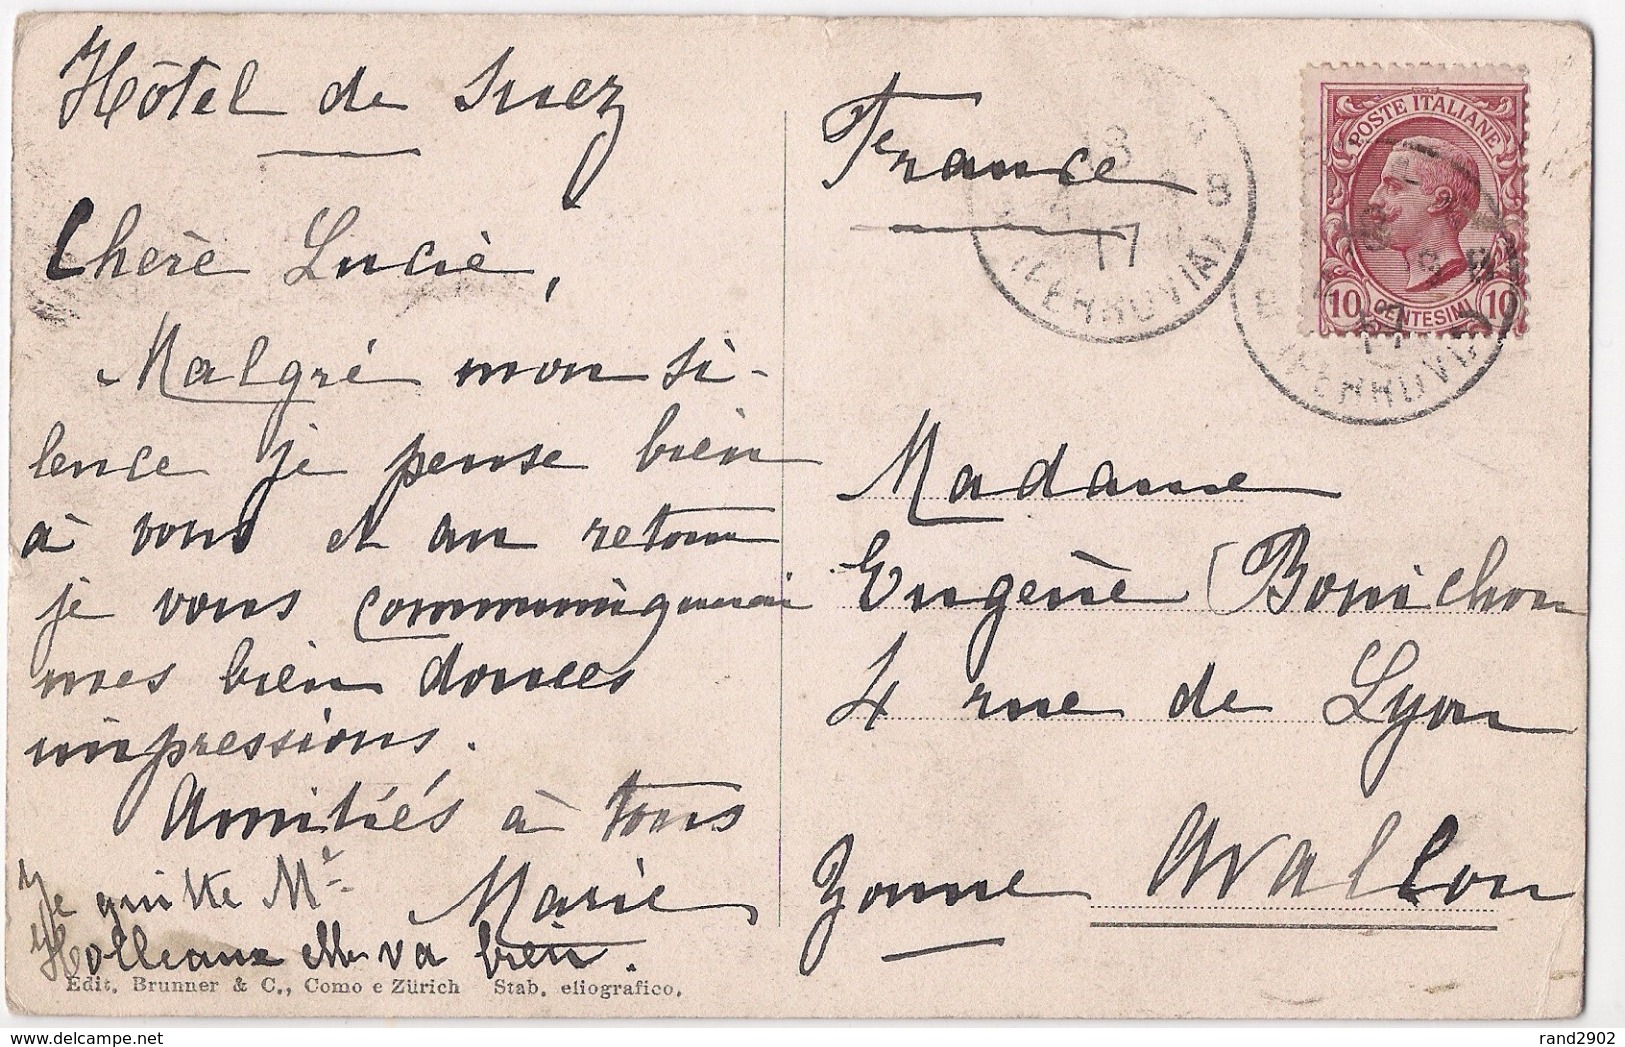 Hôtel de Suez
Chère Lucie,
Malgré mon si-
lence je pense bien
à vous et au retour
je vous communiquerai
mes bien douces
impressions.
Amitiés à tous
Marie
Je quitte Me
Holleaux elle va bien.
Edit. Brunner & C., Como e Zürich Stab. eliografico.
France
POSTE ITALIANE
10 CENTESIMI 10
17
Madame
Eugène Bonichon
4 rue de Lyon
Avallon
Yonne
rand2902